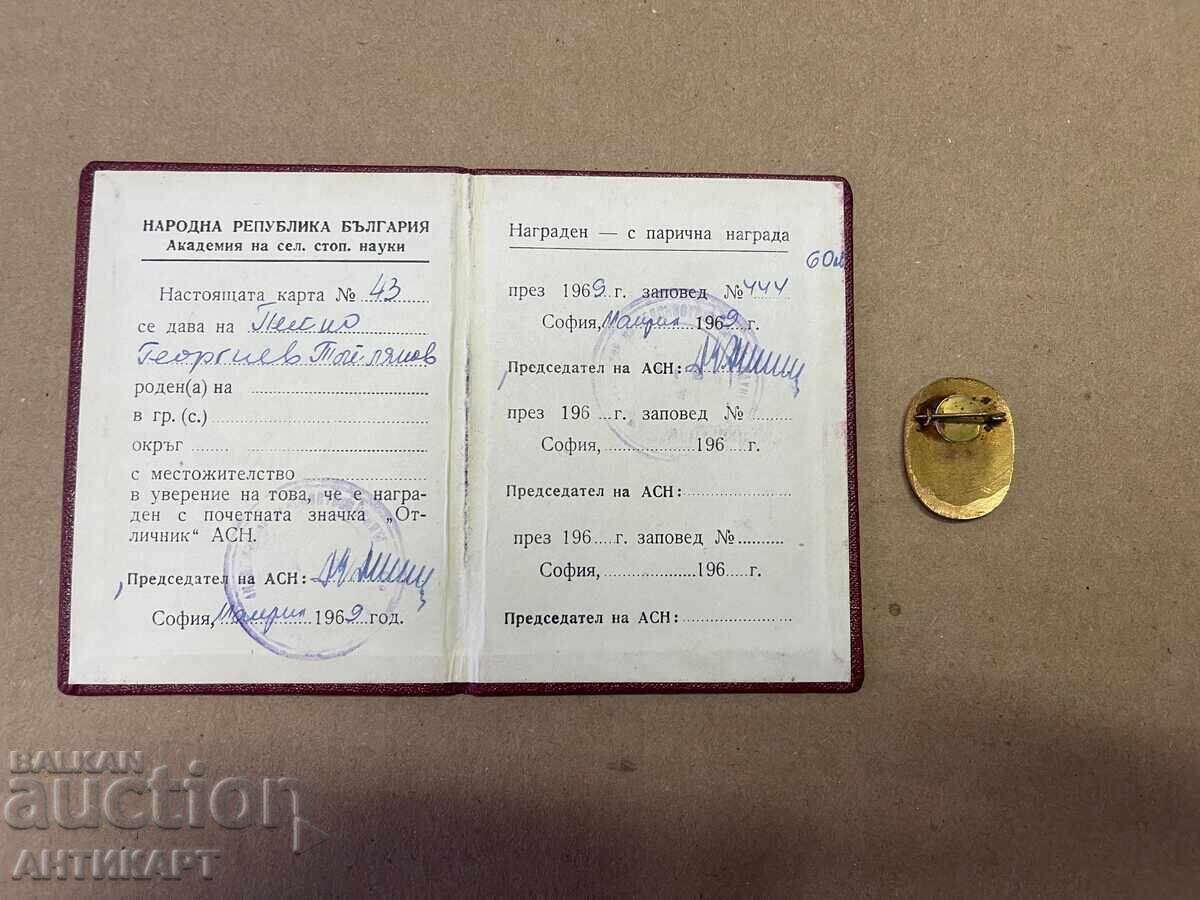 НАРОДНА РЕПУБЛИКА БЪЛГАРИЯ
Академия на сел. стоп. науки
Настоящата карта № 43
се дава на Пенчо
Георгиев
роден(а) на
в гр. (с.)
окръг
с местожителство
в уверение на това, че е награ-
ден с почетната значка „От-
личник“ АСН.
Председател на АСН:
София, 1969 год.
Награден — с парична награда
60лв
през 1969 г. заповед № 444
София, 1969 г.
Председател на АСН:
през 196 г. заповед №
София, 196 г.
Председател на АСН:
през 196 г. заповед №
София, 196 г.
Председател на АСН:
BALKAN
auction
АНТИКАРТ